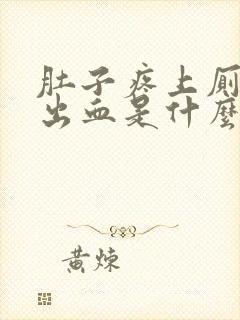 肚子疼上厕
出血是什麼
黄炼